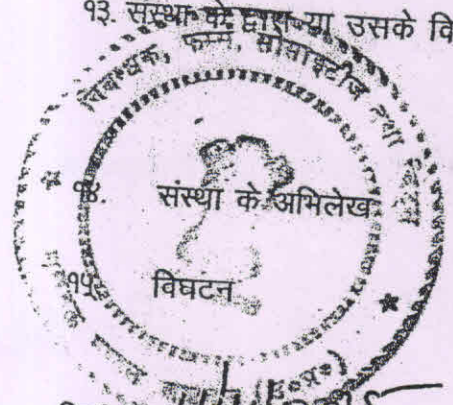 १३. संस्था के द्वारा या उसके वि
निबन्धक, फर्म्स, सोसाइटीज तथा
१४. संस्था के अभिलेख
१५. विघटन
(उ०प्र०)